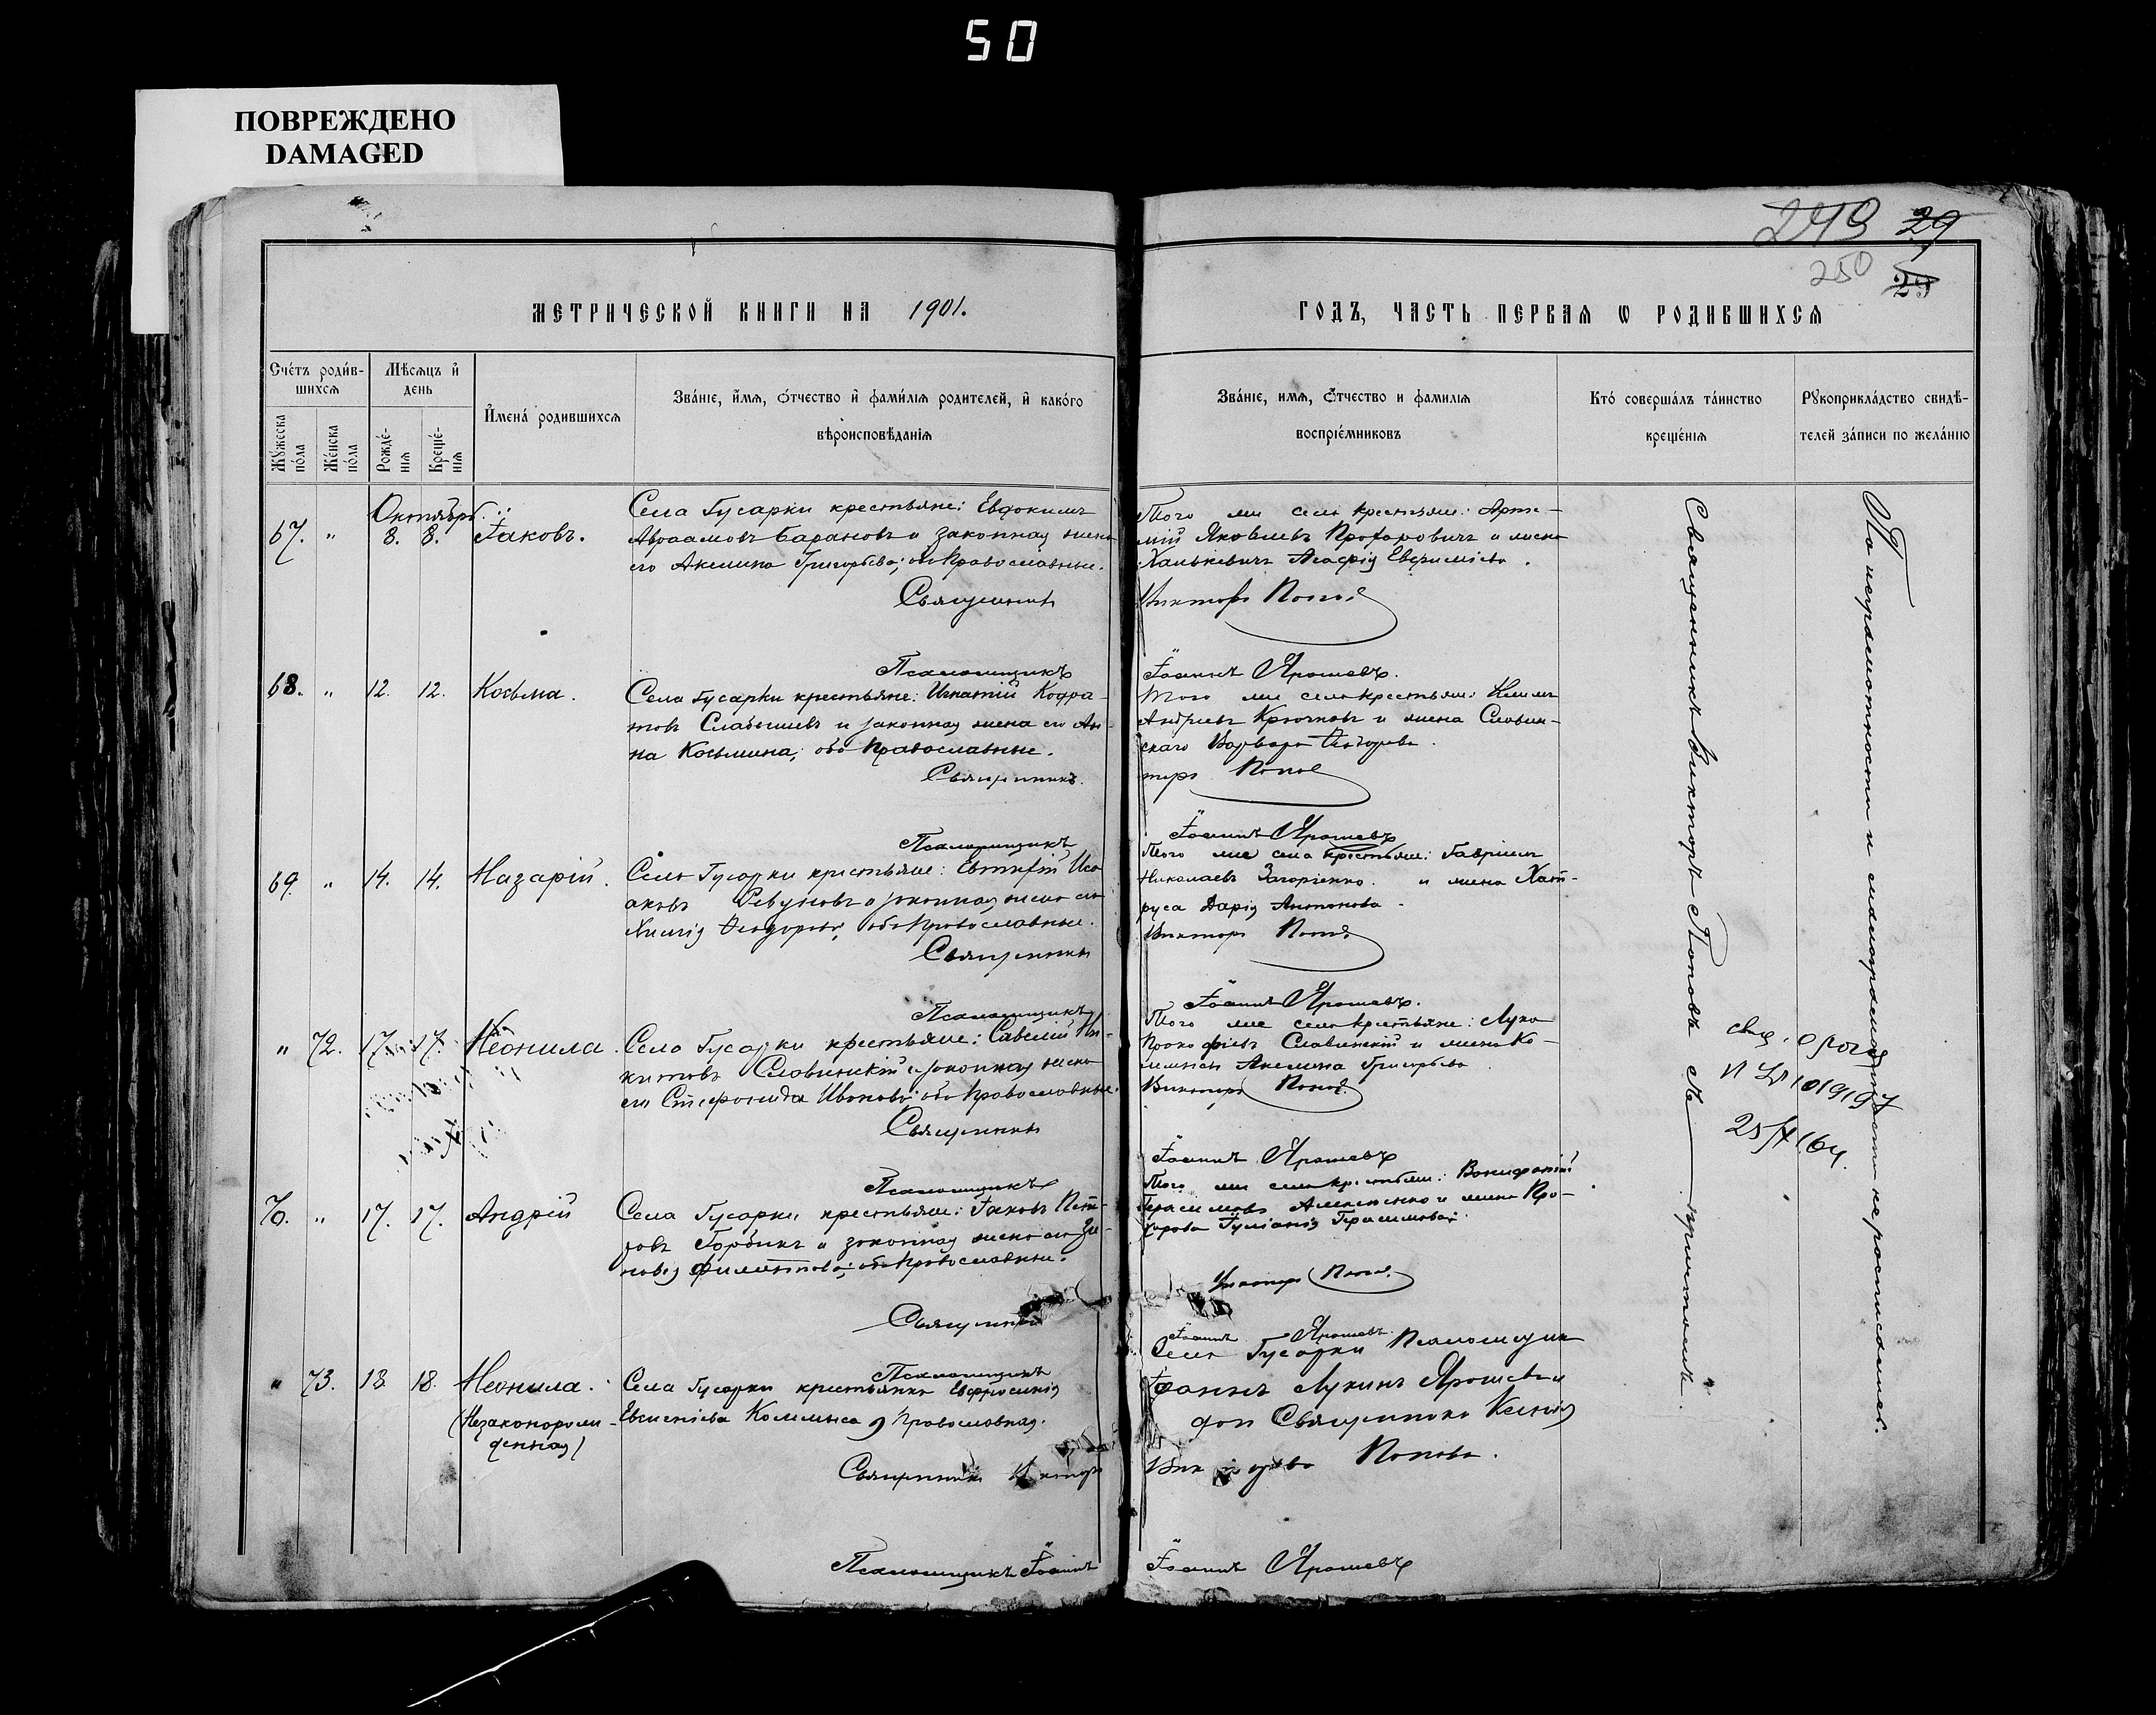 50
ПОВРЕЖДЕНО
DAMAGED
249 29
250 29
МЕТРИЧЕСКОЙ КНИГИ НА 1901.
ГОДЪ, ЧАСТЬ ПЕРВАЯ Ѡ РОДИВШИХСЯ
Счетъ родив-
шихся
Мѣсяцъ и
день
Мужеска
пола
Женска
пола
Рожде-
нія
Креще-
нія
Имена родившихся
Званіе, имя, отчество и фамилія родителей, и какого
вѣроисповѣданія
Званіе, имя, отчество и фамилія
воспріемниковъ
Кто совершалъ таинство
крещенія
Рукоприкладство свидѣ-
телей записи по желанію
Октябрь.
67. " 8. 8. Іаковъ.
Села Гусарки крестьяне: Евдокимъ
Авраамовъ Барановъ и законная жена
его Акилина Григорьева; оба Православные.
Священникъ
Того же села крестьяне: Арте-
мій Яковлевъ Прохоровичъ и жена
Ханькевича Агафія Евфиміева.
Викторъ Поповъ
Псаломщикъ
Іоаннъ Ярошевъ.
68. " 12. 12. Косьма.
Села Гусарки крестьяне: Игнатій Кодра-
товъ Слабышевъ и законная жена его Ан-
на Косьмина; оба Православные.
Священникъ
Того же села крестьяне: Климъ
Андреевъ Крючковъ и жена Славин-
скаго Варвара Ѳеодорова.
Поповъ
Псаломщикъ
Іоаннъ Ярошевъ
69. " 14. 14. Назарій.
Села Гусарки крестьяне: Евтихій Иса-
аковъ Ревуновъ и законная жена его
Ѳеодорова; оба Православные.
Священникъ
Того же села крестьяне: Гавріилъ
Николаевъ Загоріенко и жена Хат-
руса Дарія Антонова.
Викторъ Поповъ
Псаломщикъ
Іоаннъ Ярошевъ.
" 72. 17. 17. Неонила.
Села Гусарки крестьяне: Савелій Ни-
китовъ Славинскій и законная жена
его Стефанида Иванова; оба Православные.
Священникъ
Того же села крестьяне: Лука
Прокофіевъ Славинскій и жена Ко-
Акилина Григорьева.
Викторъ Поповъ
Іоаннъ Ярошевъ
Псаломщикъ
70. " 17. 17. Андрей
Села Гусарки крестьяне: Іаковъ Пет-
ровъ Горбикъ и законная жена его Зи-
новія Филиппова; оба Православные.
Священникъ
Того же села крестьяне: Вонифатій
Герасимовъ Алексенко и жена Про-
хорова Іуліанія Герасимова.
Викторъ Поповъ
Іоаннъ Ярошевъ
Псаломщикъ
" 73. 18. 18. Неонила.
(Незаконорож-
денная)
Села Гусарки крестьянка Евфросинія
Евгеніева, Православная.
Священникъ Викторъ
Села Гусарки Псаломщикъ
Іоаннъ Лукинъ Ярошевъ и
дочь Священника Ксенія
Викторова Попова.
Псаломщикъ Іоаннъ
Іоаннъ Ярошевъ
Священникъ Викторъ Поповъ съ причтомъ.
По неграмотности и малограмотности не росписались.
25/X 64.